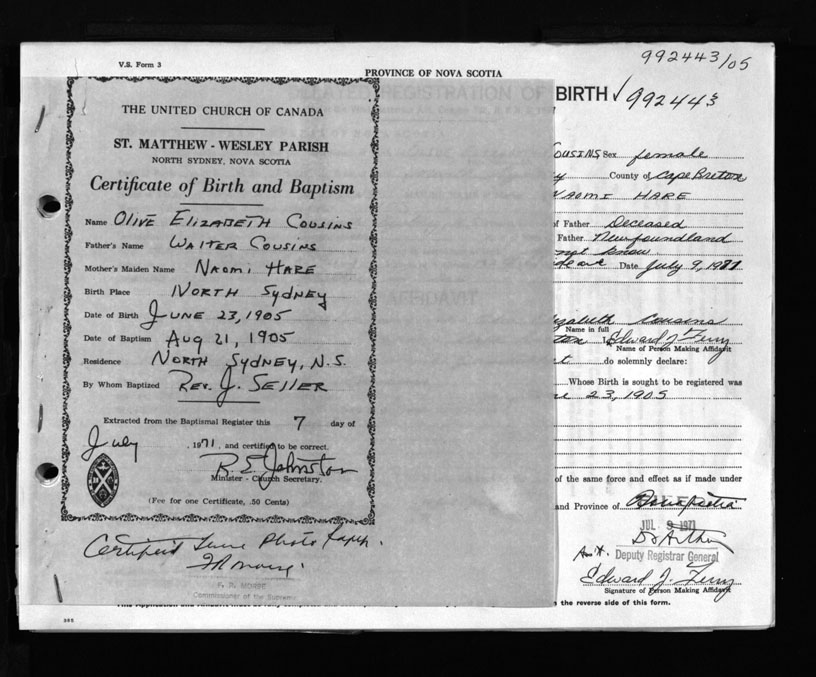 V.S. Form 3
PROVINCE OF NOVA SCOTIA
992443/05
BIRTH ✓ 992443
THE UNITED CHURCH OF CANADA
ST. MATTHEW - WESLEY PARISH
NORTH SYDNEY, NOVA SCOTIA
Certificate of Birth and Baptism
Name OLIVE ELIZABETH COUSINS
Father's Name WALTER COUSINS
Mother's Maiden Name NAOMI HARE
Birth Place NORTH SYDNEY
Date of Birth JUNE 23, 1905
Date of Baptism AUG 21, 1905
Residence NORTH SYDNEY, N.S.
By Whom Baptized REV. J. SELLER
Extracted from the Baptismal Register this 7 day of
July, 1971, and certified to be correct.
R. S. Johnston
Minister - Church Secretary.
(Fee for one Certificate, .50 Cents)
Certified True Photo Copy.
F R Morse.
F. R. MORSE
Commissioner of the Supreme
OUSINS Sex female
County of Cape Breton
NAOMI HARE
of Father Deceased
Father Newfoundland
not know
Date July 9, 1971
izabeth Cousins
Name in full
ton Edward J Ferry
Name of Person Making Affidavit
do solemnly declare:
Whose Birth is sought to be registered was
23, 1905
of the same force and effect as if made under
and Province of Nova Scotia
JUL 9 1971
Ass't. Deputy Registrar General
Edward J. Ferry
Signature of Person Making Affidavit
the reverse side of this form.